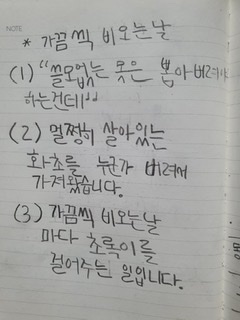 NOTE
* 가끔씩 비오는날
(1) "쓸모없는 못은 뽑아버려야
하는건데"
(2) 멀쩡히 살아있는
화초를 누군가 버려서
가져왔습니다.
(3) 가끔씩 비오는날
마다 초록이를
걸어주는 일입니다.